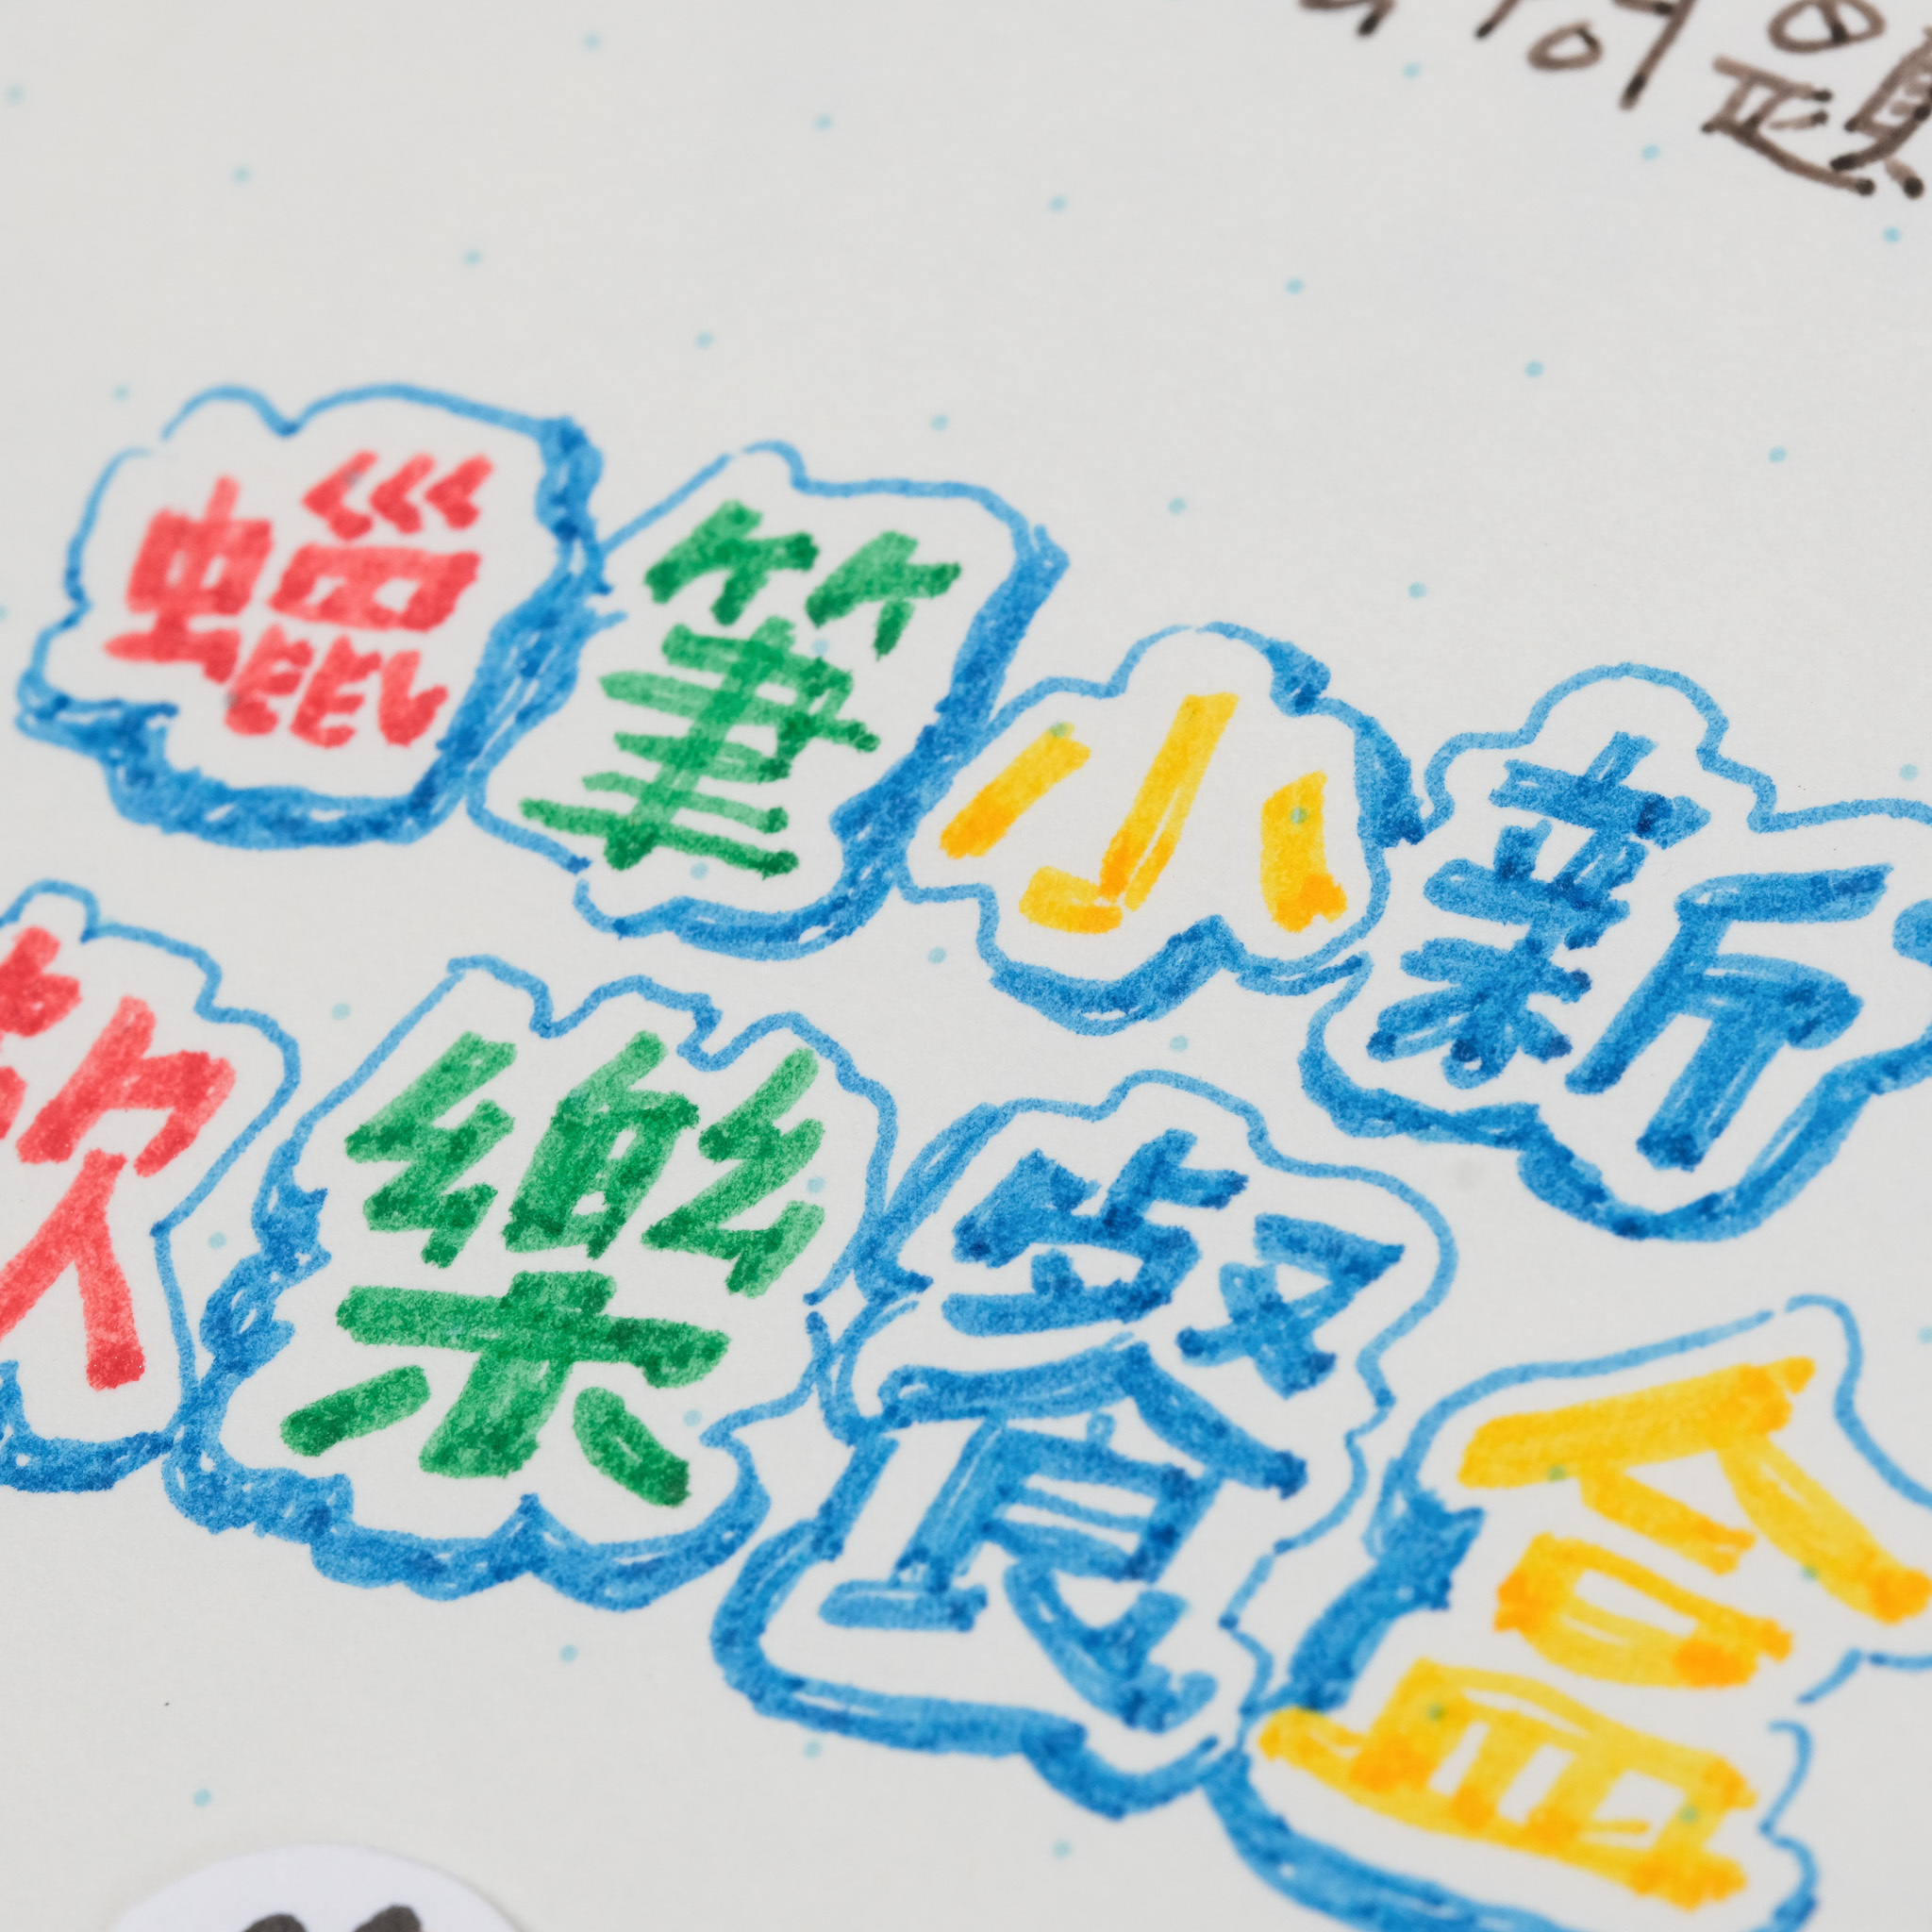 問題
蠟筆小新
歡樂餐盒